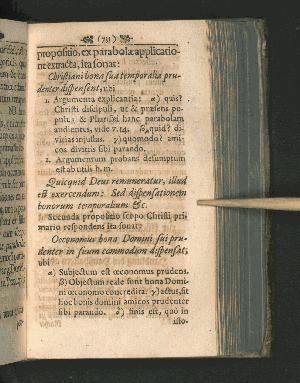 (73)
propositio, ex parabolæ applicatio-
ne extracta, ita sonat:
Christiani bona sua temporalia pru-
denter dispensent, ubi
1. Argumenta explicantia: α) quis?
Christi discipuli, ut & præsens po-
pulus & Pharisæi hanc parabolam
audientes, vide v. 14. β) quid? di-
vitias injustas. γ) quomodo? ami-
cos divitiis sibi parando.
2. Argumentum probans desumptum
est ab utili h. m.
Quicquid Deus remuneratur, illud
est exercendum: Sed dispensationem
bonorum temporalium &c.
Secunda propositio scopo Christi pri-
mario respondens ita sonat:
Oeconomus bona Domini sui pru-
denter in suum commodum dispensat,
ubi
α) Subjectum est œconomus prudens.
β) Objectum reale sunt bona Domi-
ni œconomo concredita. γ) actus, sit
hoc bonis domini amicos prudenter
sibi parando. δ) finis est, quò in
isto-